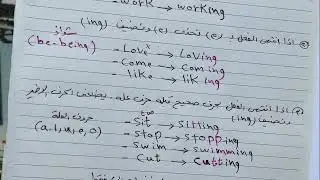 - work → working
② اذا انتهى الفعل بـ (e) تحذف (e) وتضيف (ing)
- Love → Loving
شواذ
(be-being)
- Come → coming
- like → liking
اذا انتهى الفعل بحرف صحيح قبله حرف علة، يضاعف الحرف الاخير
وتضيف (ing)
- Sit → sitting
حروف العلة
- stop → stopping
(a, i, u, e, o)
- swim → swimming
- Cut → cutting